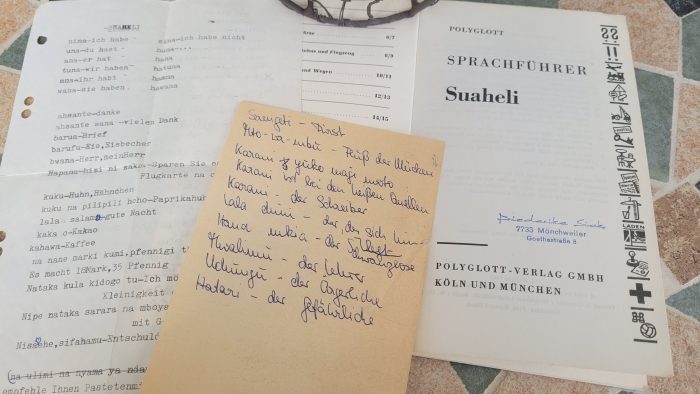 -SUAHELI
nina-ich habe
una-du hast
ana-er hat
tuna-wir haben
mna-ihr habt
wana-sie haben
sina-ich habe nicht
huna-...
hana
hatuna
hamna
hawana
ahsante-danke
ahsante sana -vielen Dank
barua-Brief
barufu-Eis,Eisbecher
bwana-Herr,meinHerr
Flugkarte na
kuku-Huhn,Hähnchen
kuku na pilipili hoho-Paprikahuhn
lala salama gute Nacht
kakao-Kakao
kahawa-Kaffee
na nane marki kumi,pfennigi
Es macht 18Mark,35 Pfennig
Nataka kula kidogo tu-Ich möchte
Kleinigkeit
Nipe nataka sarara na mboys
mit G
sifahamu-Entschuld
na ulimi na nyama ya nda
empfehle Ihnen Pastetenm
6/7
und Flugzeug
8/9
und Wagen
10/11
12/13
14/15
Mto-wa-mbu - Fluß der Mücken
Karani yuko maji moto
Karani ist bei den heißen Quellen
Karani - der Schreiber
Lala chini - der, der sich hin-
legt
Hana mkia - der Schwanzlose
Mwalimu - der Lehrer
Uchungu - der Ärgerliche
Hatari - der gefährliche
POLYGLOTT
SPRACHFÜHRER
Suaheli
Friederike
7733 Mönchweiler
Goethestraße 8
POLYGLOTT-VERLAG GMBH
KÖLN UND MÜNCHEN
LADEN